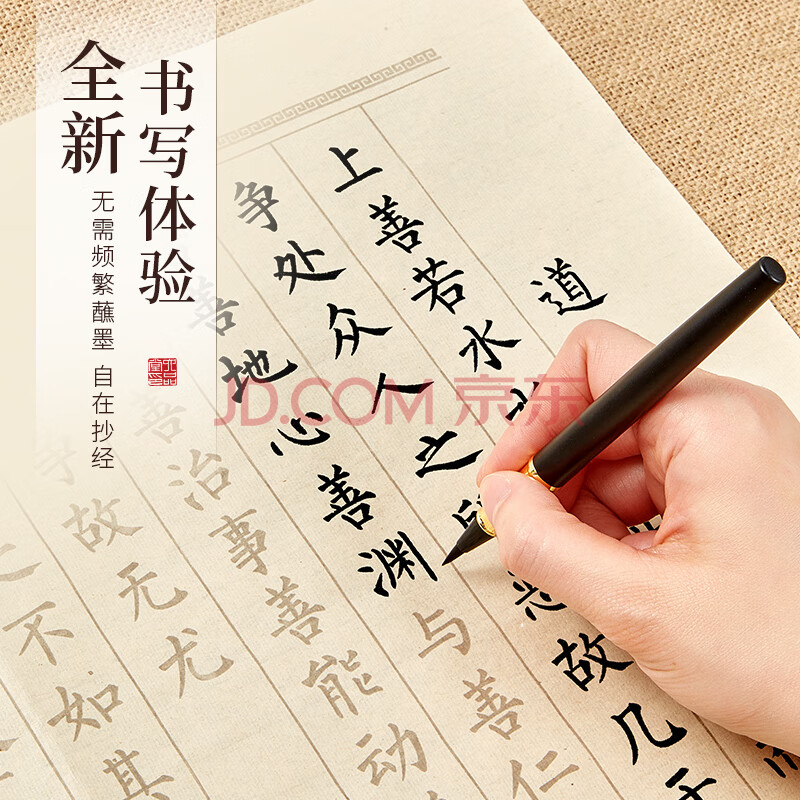 全新
书写体验
无需频繁蘸墨 自在抄经
道
上善若水
争处众人之所恶故几于
善地心善渊与善仁
善治事善能动
争故无尤
之不如其
JD.COM 京东